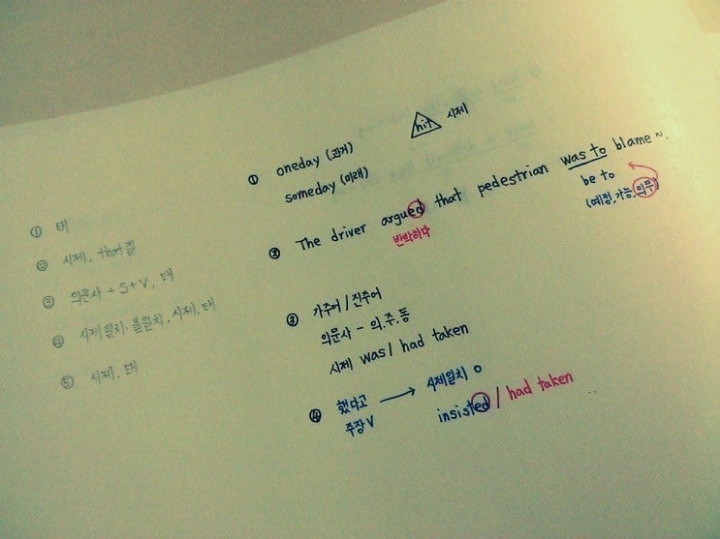 ① 태
② 시제, that절
③ 의문사 + S+V, 태
④ 시제일치·불일치, 시제, 태
⑤ 시제, 태
hit 시제
① oneday (과거)
someday (미래)
② The driver argued that pedestrian was to blame ~.
반박하다
be to
(예정, 가능, 의무)
③ 가주어 / 진주어
의문사 - 의.주.동
시제 was / had taken
④ 했다고 → 시제일치 o
주장V
insisted / had taken